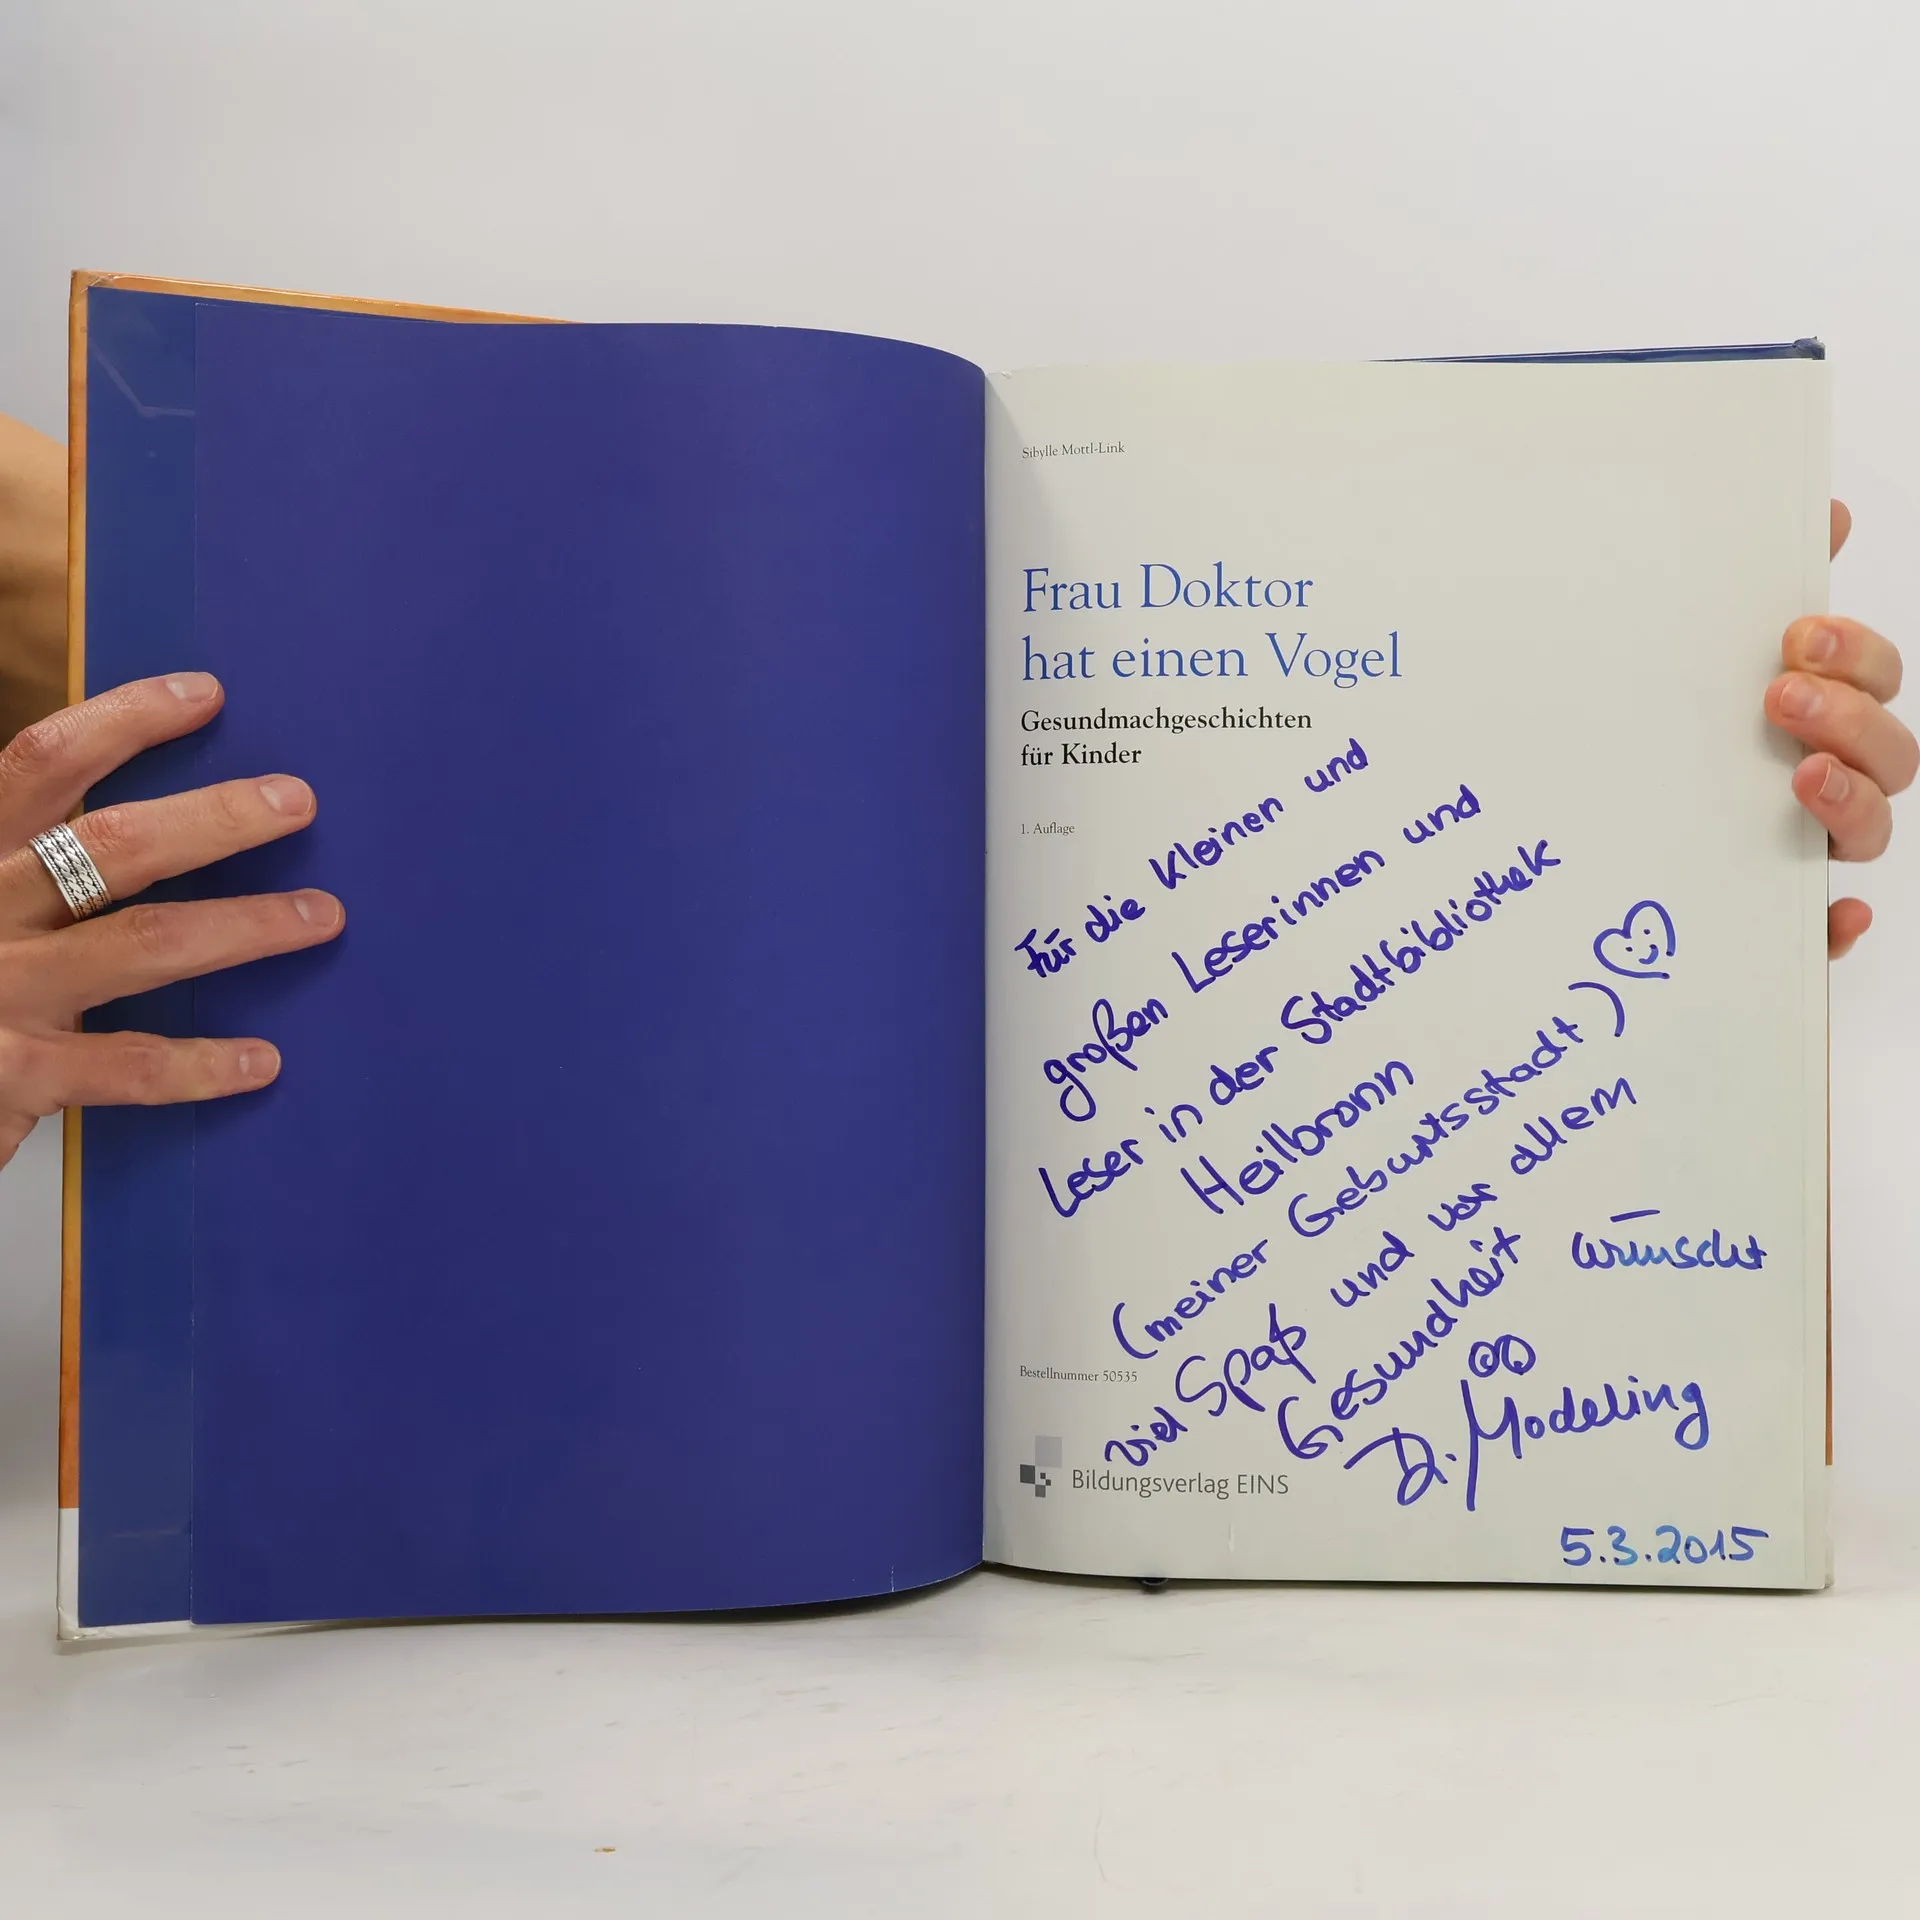 Sibylle Mottl-Link
Frau Doktor
hat einen Vogel
Gesundmachgeschichten
für Kinder
1. Auflage
Für die kleinen und
großen Leserinnen und
Leser in der Stadtbibliothek
Heilbronn
(meiner Geburtsstadt)
viel Spaß und vor allem
Gesundheit wünscht
Dr. Modeling
5.3.2015
Bestellnummer 50535
Bildungsverlag EINS